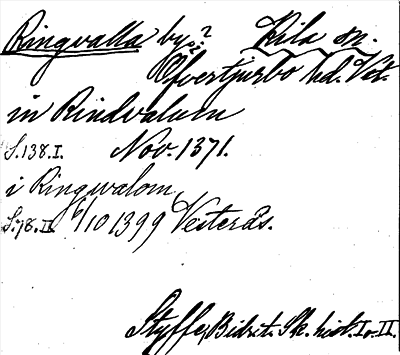 Ringvalla by? Kila sn.
Öfvertjurbo hd. Vst.
in Rindvalum
S.138.I. Nov. 1371.
i Ringwalom
S.78.II. 6/10 1399 Vesterås.
Styffe, Bidr. t. Sk. hist. I o. II.